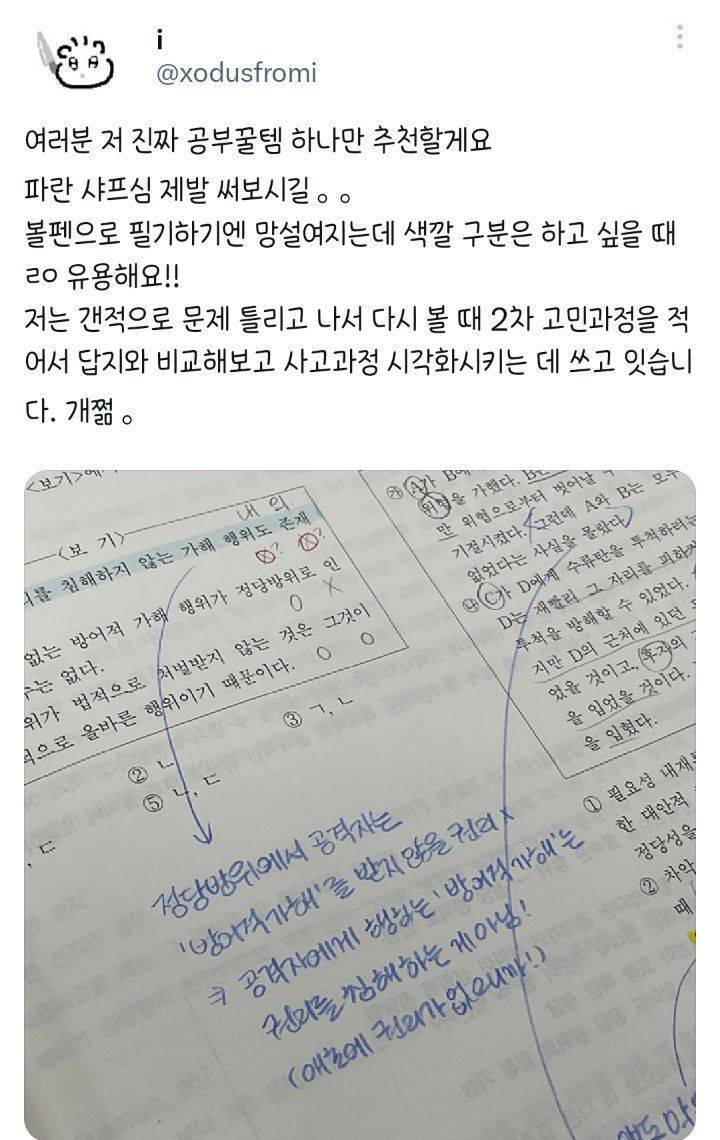 i
@xodusfromi
여러분 저 진짜 공부꿀템 하나만 추천할게요
파란 샤프심 제발 써보시길 。。
볼펜으로 필기하기엔 망설여지는데 색깔 구분은 하고 싶을 때
ㄹㅇ 유용해요!!
저는 갠적으로 문제 틀리고 나서 다시 볼 때 2차 고민과정을 적
어서 답지와 비교해보고 사고과정 시각화시키는 데 쓰고 잇습니
다. 개쩖 。
<보기>에
내 의
<보 기>
를 침해하지 않는 가해 행위도 존재
X? X?
없는 방어적 가해 행위가 정당방위로 인
O X
는 없다.
위가 법적으로 처벌받지 않는 것은 그것이
적으로 올바른 행위이기 때문이다. O O
② ㄴ ③ ㄱ, ㄴ
⑤ ㄴ, ㄷ
, ㄷ
정당방위에서 공격자는
'방어적 가해'를 받지 않을 권리 X
→ 공격자에게 행하는 '방어적 가해'는
권리를 침해하는 게 아님!
(애초에 권리가 없으니까!)
㉮ A가 B에
위협을 가했다. B는
만 위협으로부터 벗어날 수
기절시켰다. 그런데 A와 B는 모두
없었다는 사실을 몰랐다.
㉯ C가 D에게 수류탄을 투척하려는
D는 재빨리 그 자리를 피하
투척을 방해할 수 있었다.
지만 D의 근처에 있던
었을 것이고, 후자의
을 입었을 것이다.
을 입혔다.
① 필요성 내재
한 대안적
정당성을
② 차악
때